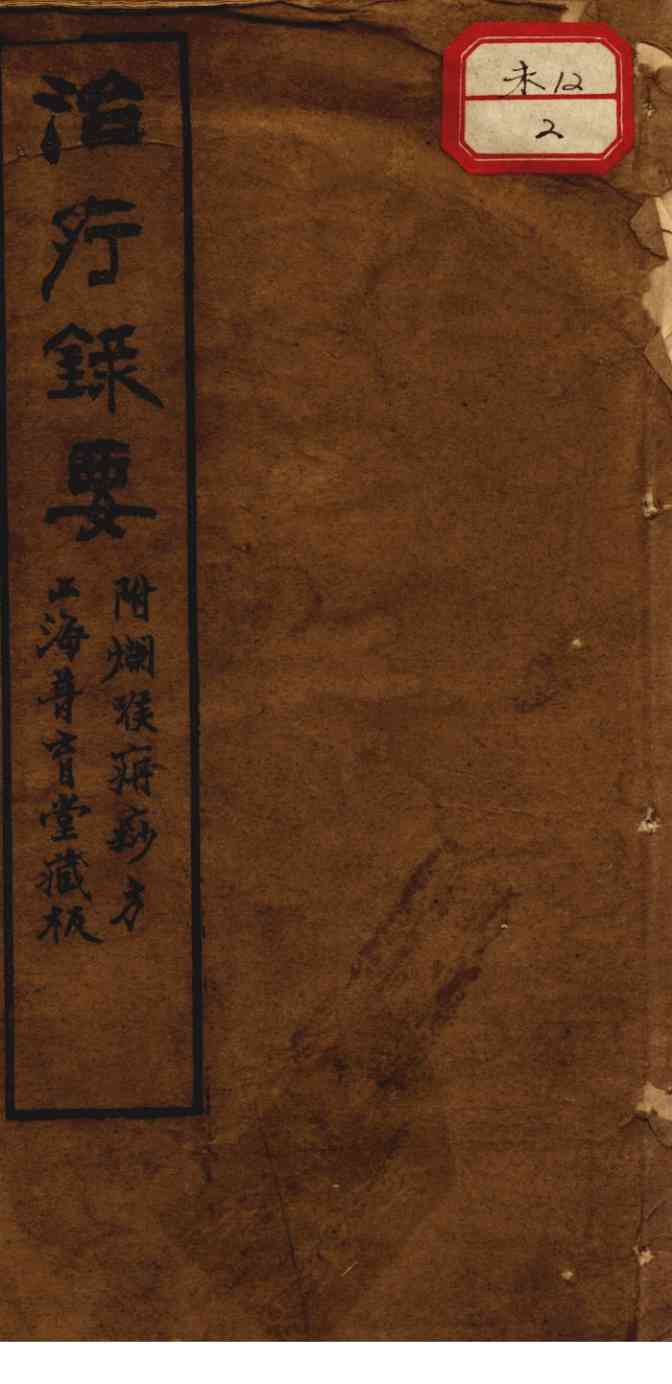 治疔錄要
附爛喉痧痧方
上海普育堂藏板
未12
2